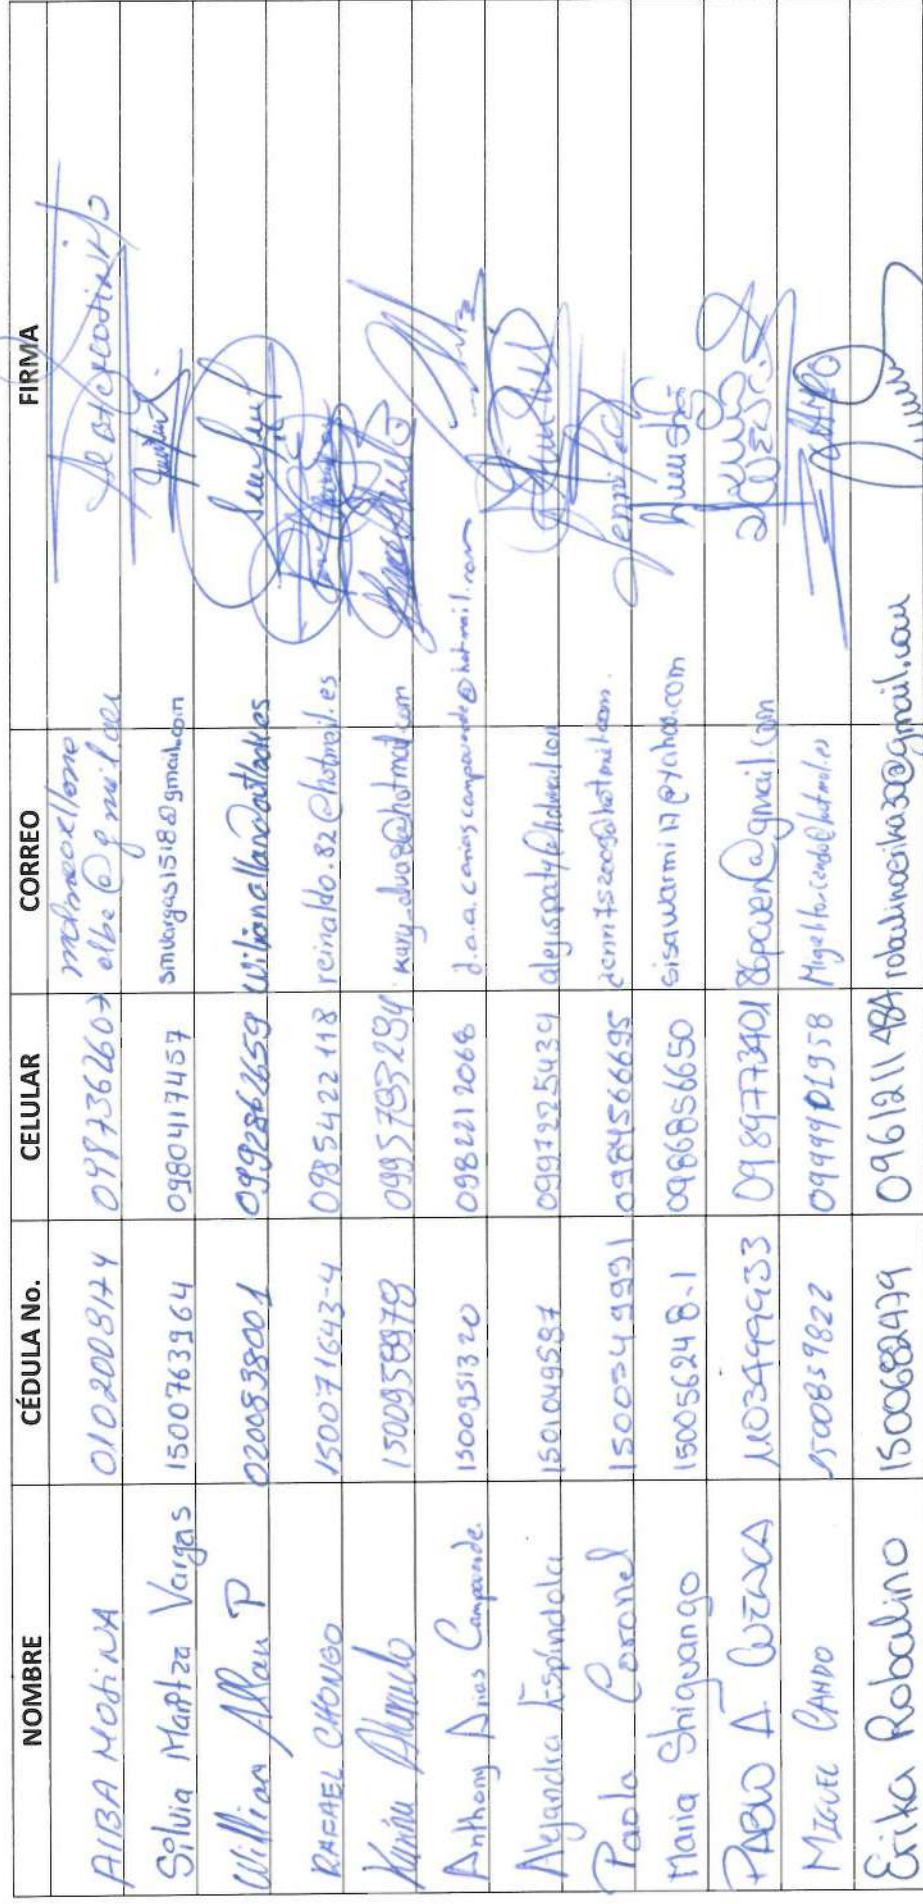 NOMBRE CÉDULA No. CELULAR CORREO FIRMA
AlBA MOliNA 0102008174 0987362607
elbe@gmail.com
Silvia Maritza Vargas 1500763964 0980417457 smvargas1518@gmail.com
William Allan P 0200538001 0992862659
RAFAEL CHONGO 150071643-4 0985422118 reinaldo.82@hotmail.es
1500958978 0995793294
Anthony Arias Campaverde. 1500951320 0982212068 d.a.a.cariascampoverde@hotmail.com
Alejandra Espíndola 1501049587 0997225434
Paola Coronel 1500349991 0984566695
Jennifed
Maria Shiguango 150056248-1 0986856650 sisawarmi17@yahoo.com
PABLO A CUENCA 1103499933 0989773401 86pcuen@gmail.com
MIGUEL CANDO 1500859822
Erika Robalino 1500682479 0961211484 robalinoerika30@gmail.com